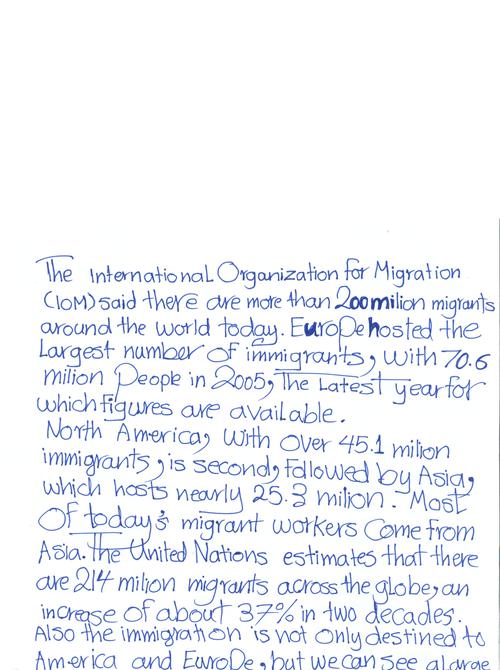 The International Organization for Migration
(IOM) said there are more than 200 milion migrants
around the world today. Europe hosted the
Largest number of immigrants, with 70.6
milion People in 2005, The Latest year for
which figures are available.
North America, with over 45.1 milion
immigrants, is second, followed by Asia,
which hosts nearly 25.3 milion. Most
Of today's migrant workers come from
Asia. the United Nations estimates that there
are 214 milion migrants across the globe, an
increase of about 37% in two decades.
Also the immigration is not only destined to
America and Europe, but we can see a large